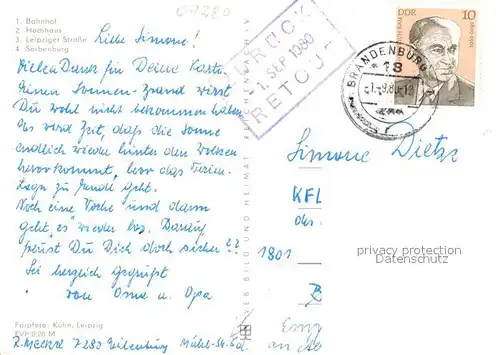 07280
1. Bahnhof
2. Hochhaus
3. Leipziger Straße
4. Sorbenburg
Liebe Simone!
Vielen Dank für Deine Karte.
Einen Sonnen-brand wirst
Du wohl nicht bekommen haben
Es wird Zeit, daß die Sonne
endlich wieder hinter den Wolken
hervorkommt, bevor das Ferien-
lager zu Ende geht.
Noch eine Woche und dann
geht „es" wieder los. Darauf
freust Du Dich doch sicher??
Sei herzlich gegrüßt
von Oma u. Opa
Farbfoto: Kühn, Leipzig
EVP 0,20 M
7280 Eilenburg
BILD UND HEIMAT
ZURÜCK
1. SEP. 1980
RETOUR
DDR
10
BRANDENBURG
-1.-9.80-18
Simone Dietze
KFL
1801
privacy protection
Datenschutz